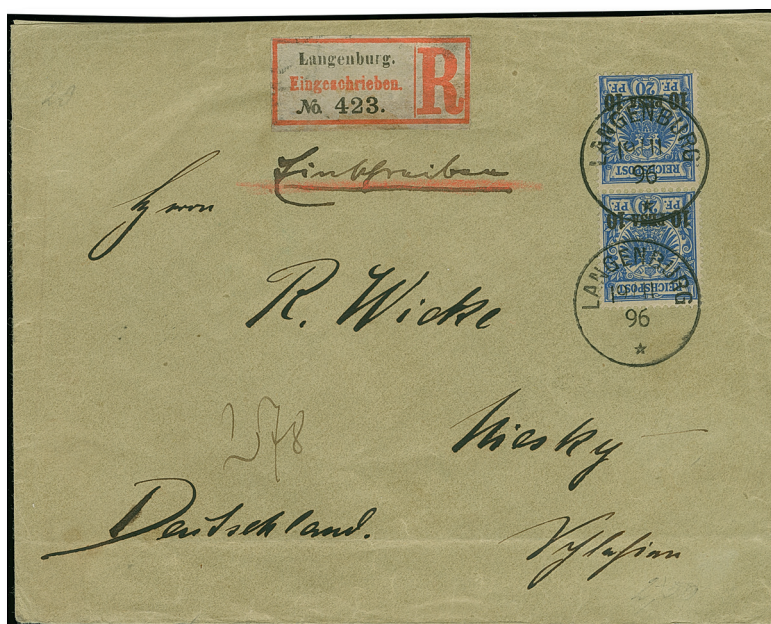 Langenburg.
Eingeschrieben.
No. 423.
R
Einschreiben
Herrn
R. Wicke
Niesky
Deutschland.
Schlesien
20
PF
PF
REICHSPOST
LANGENBURG
19 11
96
20
PF
PF
REICHSPOST
LANGENBURG
96